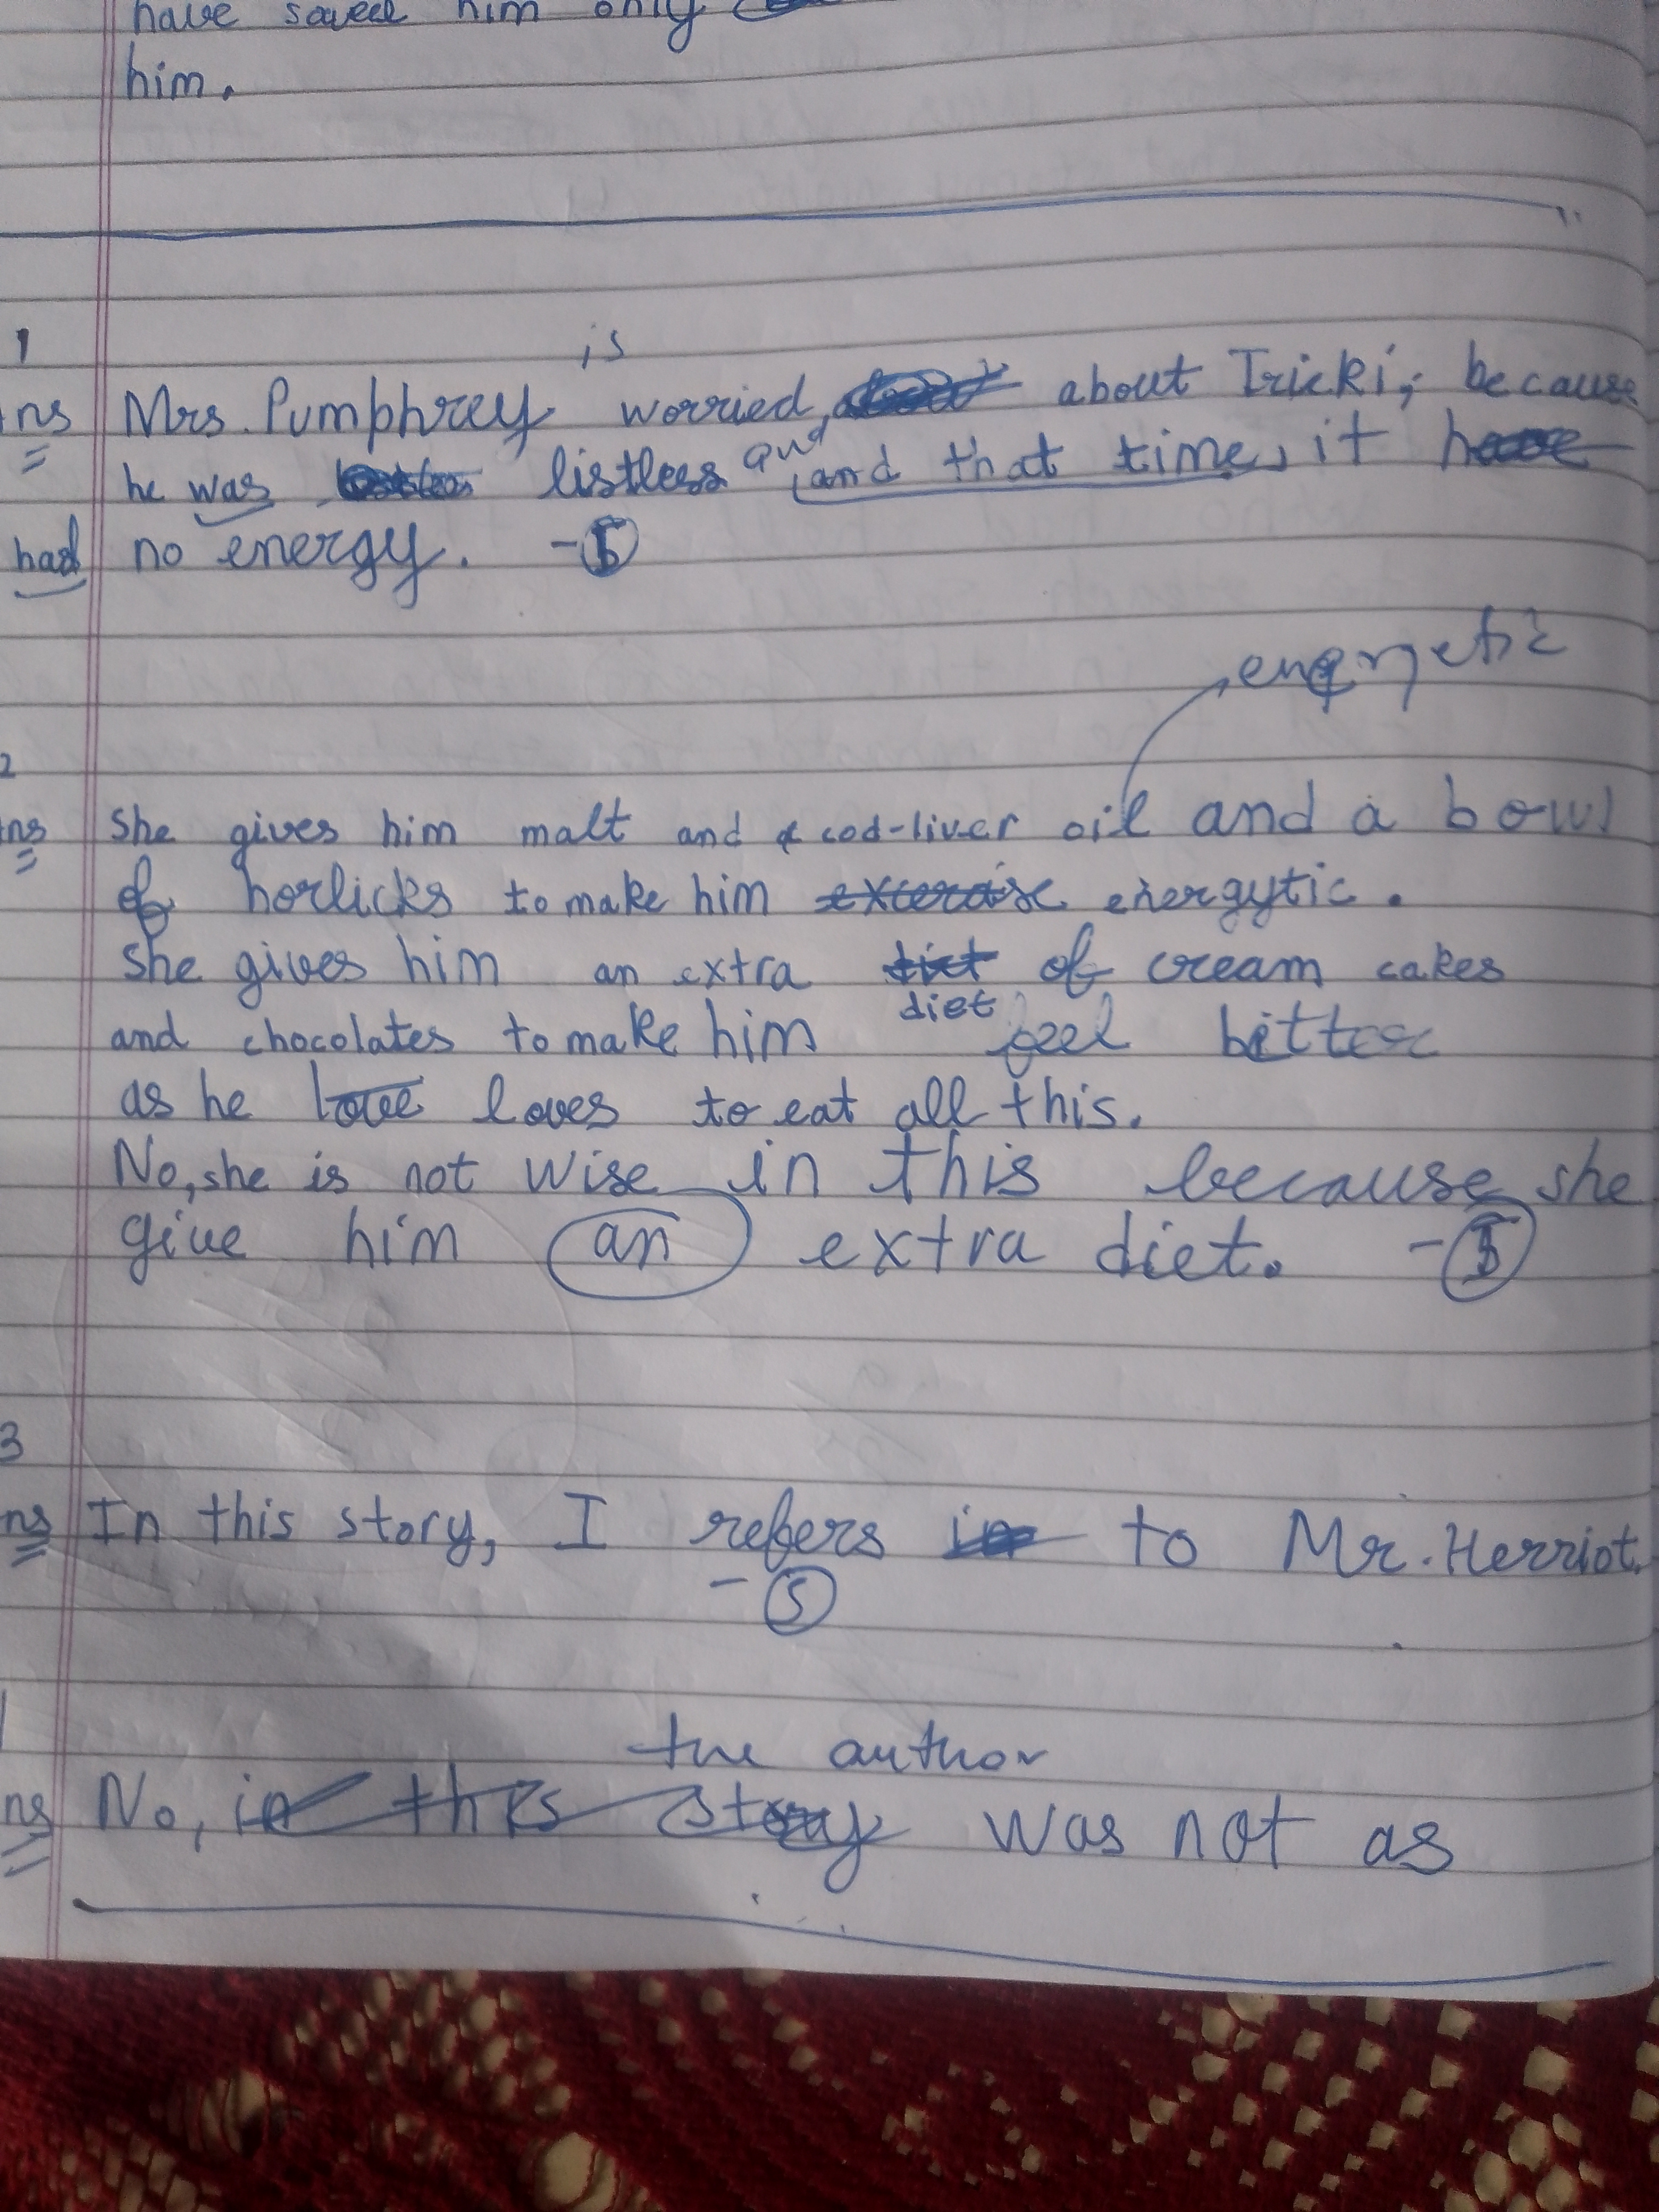 have saved him only
him.
1
is
ns Mrs. Pumphrey worried about Tricki, because
he was listless and and that time, it have
had no energy. -5
energetic
2
ns she gives him malt and cod-liver oil and a bowl
of horlicks to make him exercise energytic.
she gives him an extra diet of cream cakes
diet
and chocolates to make him feel bitter
as he love loves to eat all this.
No, she is not wise in this because she
give him an extra diet. -5
3
ns In this story, I refers in to Mr. Herriot.
-5
1
the author
ns No, in this story was not as